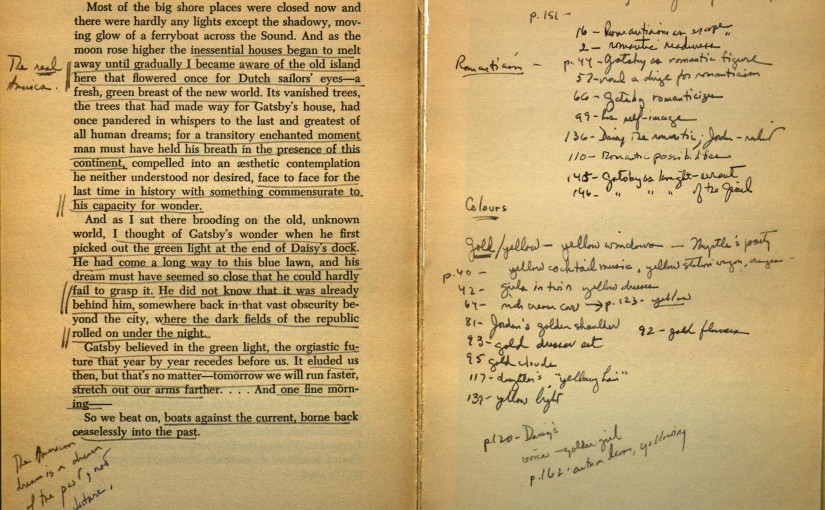 Most of the big shore places were closed now and
there were hardly any lights except the shadowy, mov-
ing glow of a ferryboat across the Sound. And as the
moon rose higher the inessential houses began to melt
away until gradually I became aware of the old island
here that flowered once for Dutch sailors' eyes—a
fresh, green breast of the new world. Its vanished trees,
the trees that had made way for Gatsby's house, had
once pandered in whispers to the last and greatest of
all human dreams; for a transitory enchanted moment
man must have held his breath in the presence of this
continent, compelled into an æsthetic contemplation
he neither understood nor desired, face to face for the
last time in history with something commensurate to
his capacity for wonder.
And as I sat there brooding on the old, unknown
world, I thought of Gatsby's wonder when he first
picked out the green light at the end of Daisy's dock.
He had come a long way to this blue lawn, and his
dream must have seemed so close that he could hardly
fail to grasp it. He did not know that it was already
behind him, somewhere back in that vast obscurity be-
yond the city, where the dark fields of the republic
rolled on under the night.
Gatsby believed in the green light, the orgiastic fu-
ture that year by year recedes before us. It eluded us
then, but that's no matter—tomorrow we will run faster,
stretch out our arms farther. . . . And one fine morn-
ing—
So we beat on, boats against the current, borne back
ceaselessly into the past.
The real
America.
The American
dream is a dream
of the past, not
future.
p. 151 -
16 - Romanticism as escape
2 - romantic readiness
Romanticism - p. 44 - Gatsby as romantic figure
57 - a dirge for romanticism
66 - Gatsby romanticizes
99 - his self-image
136 - Daisy the romantic; Jordan -
110 - Romantic possibilities
145 - Gatsby as knight-errant
146 - " " " of the Grail
Colours
Gold/yellow - yellow windows - Myrtle's party
p. 40 - yellow cocktail music, yellow station wagon, oranges
42 - girls in twin yellow dresses
64 - rich cream car → p. 123 - yellow
81 - Jordan's golden shoulder
92 - gold flowers
93 - gold dresser set
95 gold clouds
117 - daughter's "yellowy hair"
139 - yellow light
p. 120 - Daisy's
voice - golden girl
p. 162 - autumn leaves, yellowing